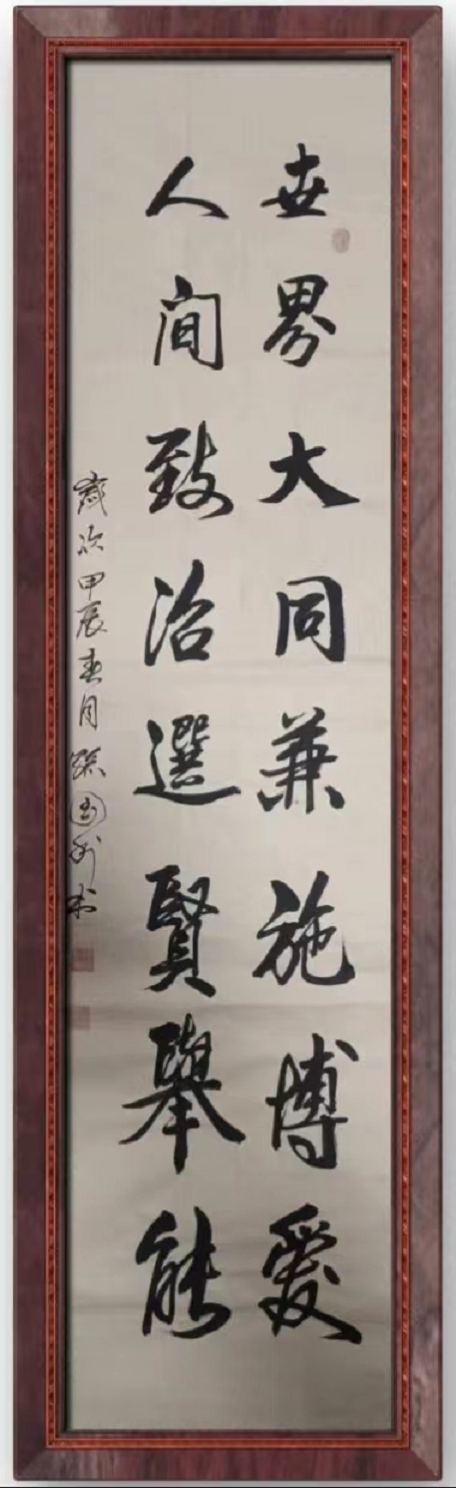 世界大同兼施博愛
人间致治選賢舉能
歲次甲辰春月張